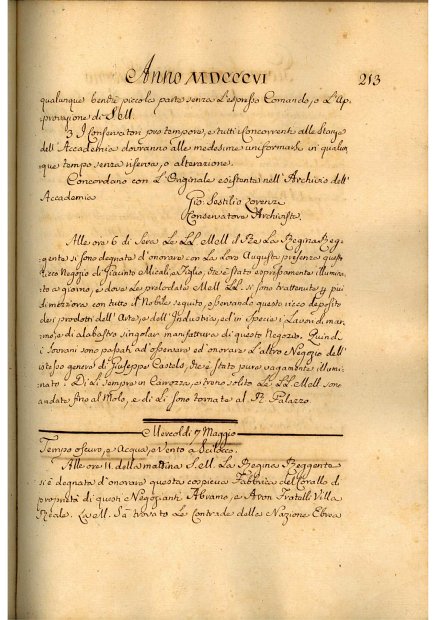 Anno MDCCCVI 213
qualunque benchè piccola parte senza l'espresso Comando, o l'Ap-
provazione di S. M.
3. I Conservatori pro tempore, e tutti i Concorrenti alle Stanze
dell'Accademia dovranno alle medesime uniformarsi in qualun-
que tempo senza riserva, o alterazione.
Concordano con l'Originale esistente nell'Archivio dell'
Accademia
Gio. Sestilio Lorenzi
Conservatore Archivista.
Alle ore 6 di Sera Le LL. MM. il Re La Regina Reg-
gente si sono degnate d'onorare con La Loro Augusta presenza questo
ricco Negozio di Giacinto Micali, e Figlio, che è stato espressamente illumina-
to a giorno, e dove Le prelodate MM. LL. si sono trattenute più
di mezz'ora con tutto il Nobile seguito, osservando questo ricco deposito
dei prodotti dell'Arte, e dell'Industria, ed in specie i Lavori di mar-
mo, e di alabastro singolar manifattura di questo Negozio. Quindi
i Sovrani sono passati ad osservare ed onorare L'altro Negozio dell'
istesso genere di Giuseppe Castelo, che è stato pure vagamente illumi-
nato. Di Lì sempre in Carrozza, e treno solito Le LL. MM. sono
andate fino al Molo, e di Lì sono tornate al R. Palazzo.
Mercoldì 7 Maggio
Tempo oscuro, e Acqua, e Vento a Scilocco.
Alle ore 11. della mattina S. M. La Regina Reggente
si è degnata d'onorare questa cospicua Fabbrica del Corallo di
proprietà di questi Negozianti Abramo, e Aron Fratelli Villa
Reale. La M. Sa trovato Le Contrade della Nazione Ebrea